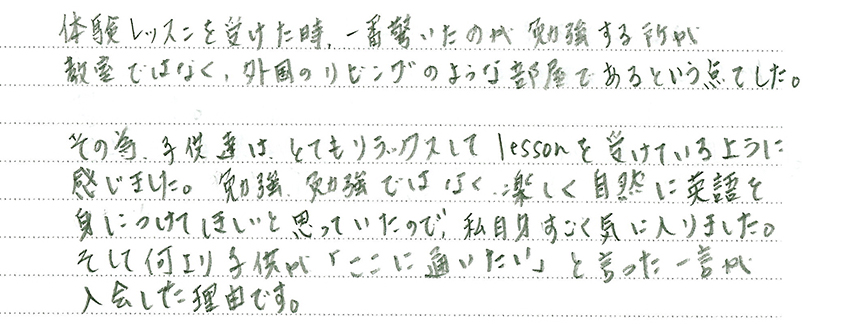 体験レッスンを受けた時、一番驚いたのが勉強する所が
教室ではなく、外国のリビングのような部屋であるという点でした。
その為、子供達は、とてもリラックスして lessonを受けているように
感じました。勉強、勉強ではなく、楽しく自然に英語を
身につけてほしいと思っていたので、私自身すごく気に入りました。
そして何より子供が「ここに通いたい」と言った一言が
入会した理由です。